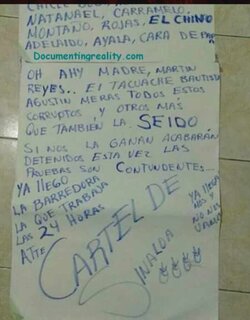 NATANAEL, CARRAMELO,
MONTAÑO, ROJAS, EL CHINO
ADELAIDO, AYALA, CARA DE PAPA
Documentingreality.com
OH AHY MADRE, MARTIN
REYES.. EL TACUACHE BAUTISTA
AGUSTIN MERAS TODOS ESTOS
CORRUPTOS, Y OTROS MAS
QUE TAMBIEN LA SEIDO
SI NOS LA GANAN ACABARÁN
DETENIDOS ESTA VEZ LAS
PRUEBAS SON CONTUNDENTES...
YA LLEGO
LA BARREDORA
LA QUE TRABAJA
LAS 24 HORAS
ATTE
CARTEL DE
SINALOA
YA LLEGA
MOS Y
NO NOS
VAMOS